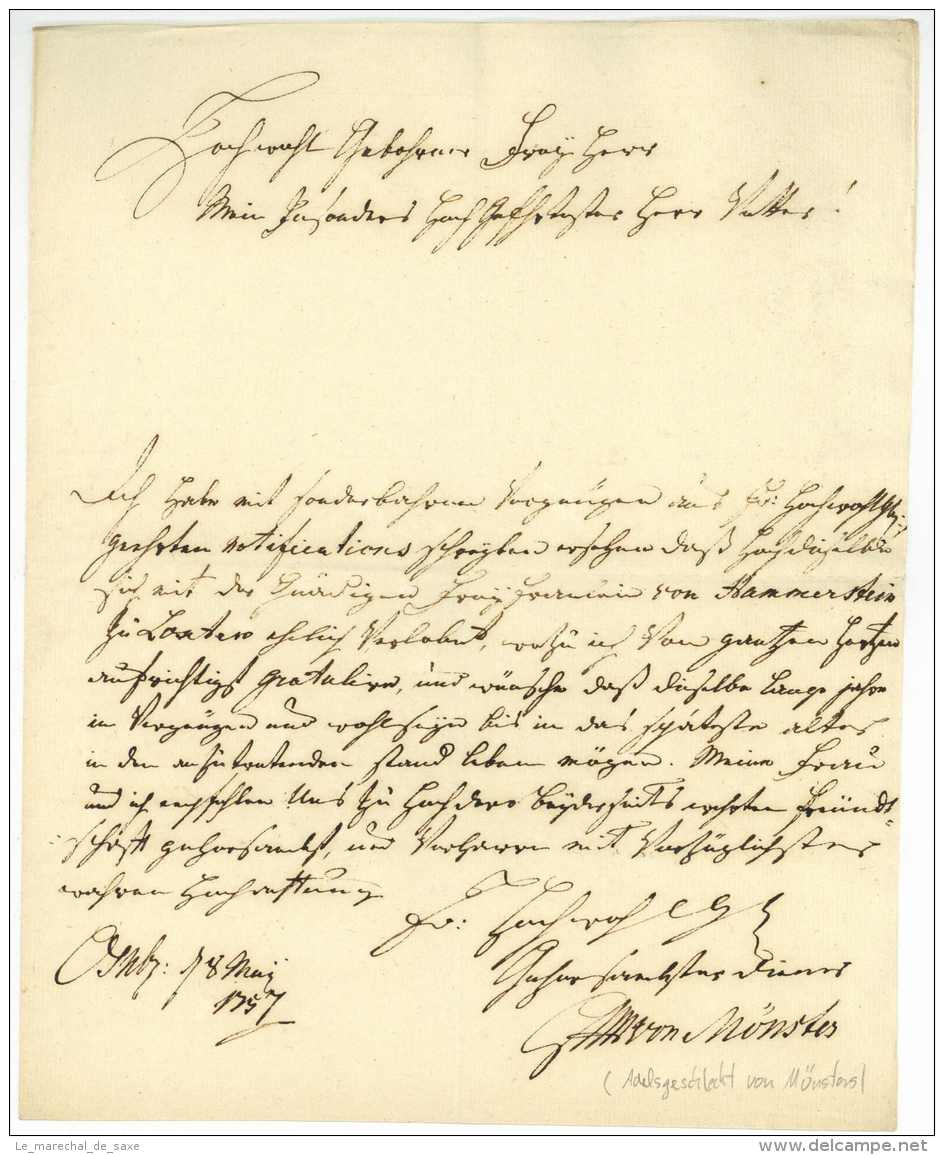 Hochwohl Gebohrner Frey Herr
Mein Insonders Hoch Geehrtester Herr Vetter!
Ich habe mit sonderbahren Vergnügen aus Ew: Hochwohlgb:
geehrten notifications schreyben ersehen daß Hochdieselbe
sich mit der Gnädigen Frey Fraulein von Hammerstein
zu Loxten ehelich Verlobet, wozu ich Von gantzen Hertzen
aufrichtigst gratulire, und wünsche daß dieselbe lange jahre
in Vergnügen und wohlseyn bis in das späteste alter
in den anzutretenden stand leben mögen. Meine Frau
und ich empfehlen Uns zu Hochdero beyderseits wehrten Freündt-
schafft gehorsambst, und Verharre mit Vorzüglichster
wahren Hochachtung
Ew: Hochwohlgb
Osnb: 18 May
1757
Gehorsambster Diener
von Mönster
(Adelsgeschlecht von Mönster)
Le_marechal_de_saxe
www.delcampe.net